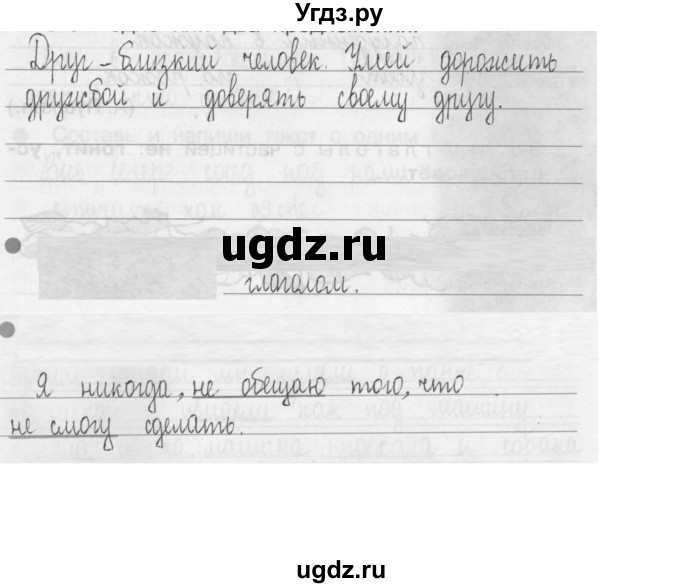 Угдз.ру
Друг – близкий человек. Умей дорожить
дружбой и доверять своему другу.
ugdz.ru
глаголом.
Я никогда, не обещаю того, что
не смогу сделать.
ugdz.ru